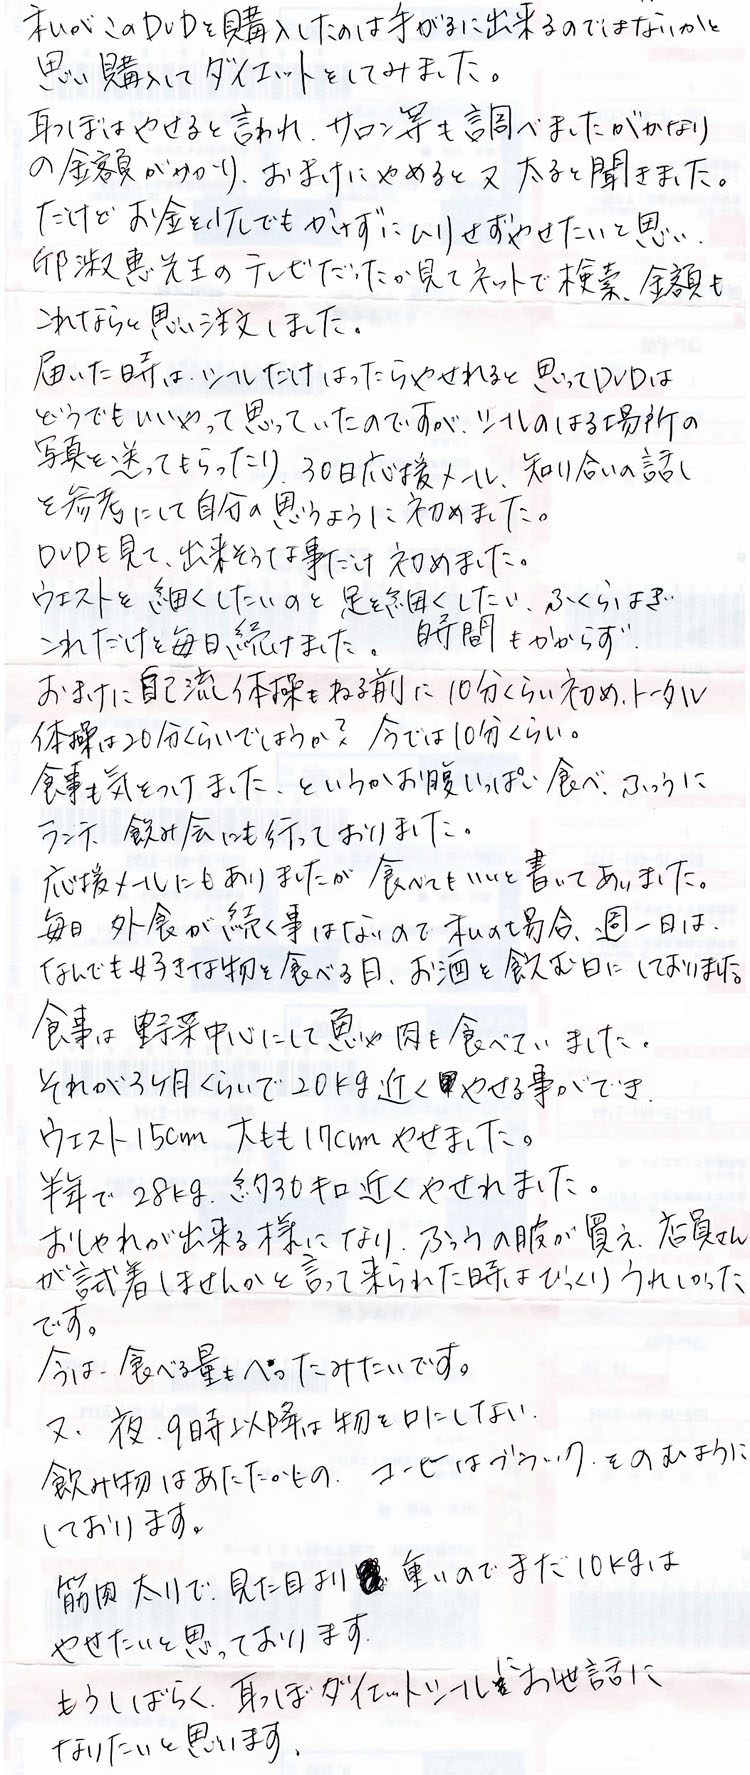 私がこのDVDを購入したのは手がるに出来るのではないかと
思い購入してダイエットをしてみました。
耳つぼはやせると言われ、サロン等も調べましたがかなり
の金額がかかり、おまけにやめると又太ると聞きました。
だけどお金を少しでもかけずにムリせずやせたいと思い、
邱淑恵先生のテレビだったか見てネットで検索、金額も
これならと思い注文しました。
届いた時は、シールだけはったらやせれると思ってDVDは
どうでもいいやって思っていたのですが、シールのはる場所の
写真を送ってもらったり、30日応援メール、知り合いの話し
を参考にして自分の思うように初めました。
DVDも見て、出来そうな事だけ初めました。
ウエストを細くしたいのと足を細くしたい、ふくらはぎ
これだけを毎日続けました。時間もかからず、
おまけに自己流体操もねる前に10分くらい初め、トータル
体操は20分くらいでしょうか?今では10分くらい。
食事も気をつけました、というかお腹いっぱい食べ、ふつうに
ランチ、飲み会にも行っておりました。
応援メールにもありましたが食べてもいいと書いてありました。
毎日外食が続く事はないので私の場合、週一日は、
なんでも好きな物を食べる日、お酒を飲む日にしておりました。
食事は野菜中心にして魚や肉も食べていました。
それが3ヶ月くらいで20kg近くやせる事ができ、
ウエスト15cm 太もも17cmやせました。
半年で28kg、約30キロ近くやせれました。
おしゃれが出来る様になり、ふつうの服が買え、店員さん
が試着しませんかと言って来られた時はびっくりうれしかった
です。
今は、食べる量もへったみたいです。
又、夜、9時以降は物を口にしない、
飲み物はあたたかいもの、コーヒーはブラック、そのむように
しております。
筋肉太りで、見た目より重いのでまだ10kgは
やせたいと思っております。
もうしばらく、耳つぼダイエットシールにお世話に
なりたいと思います。